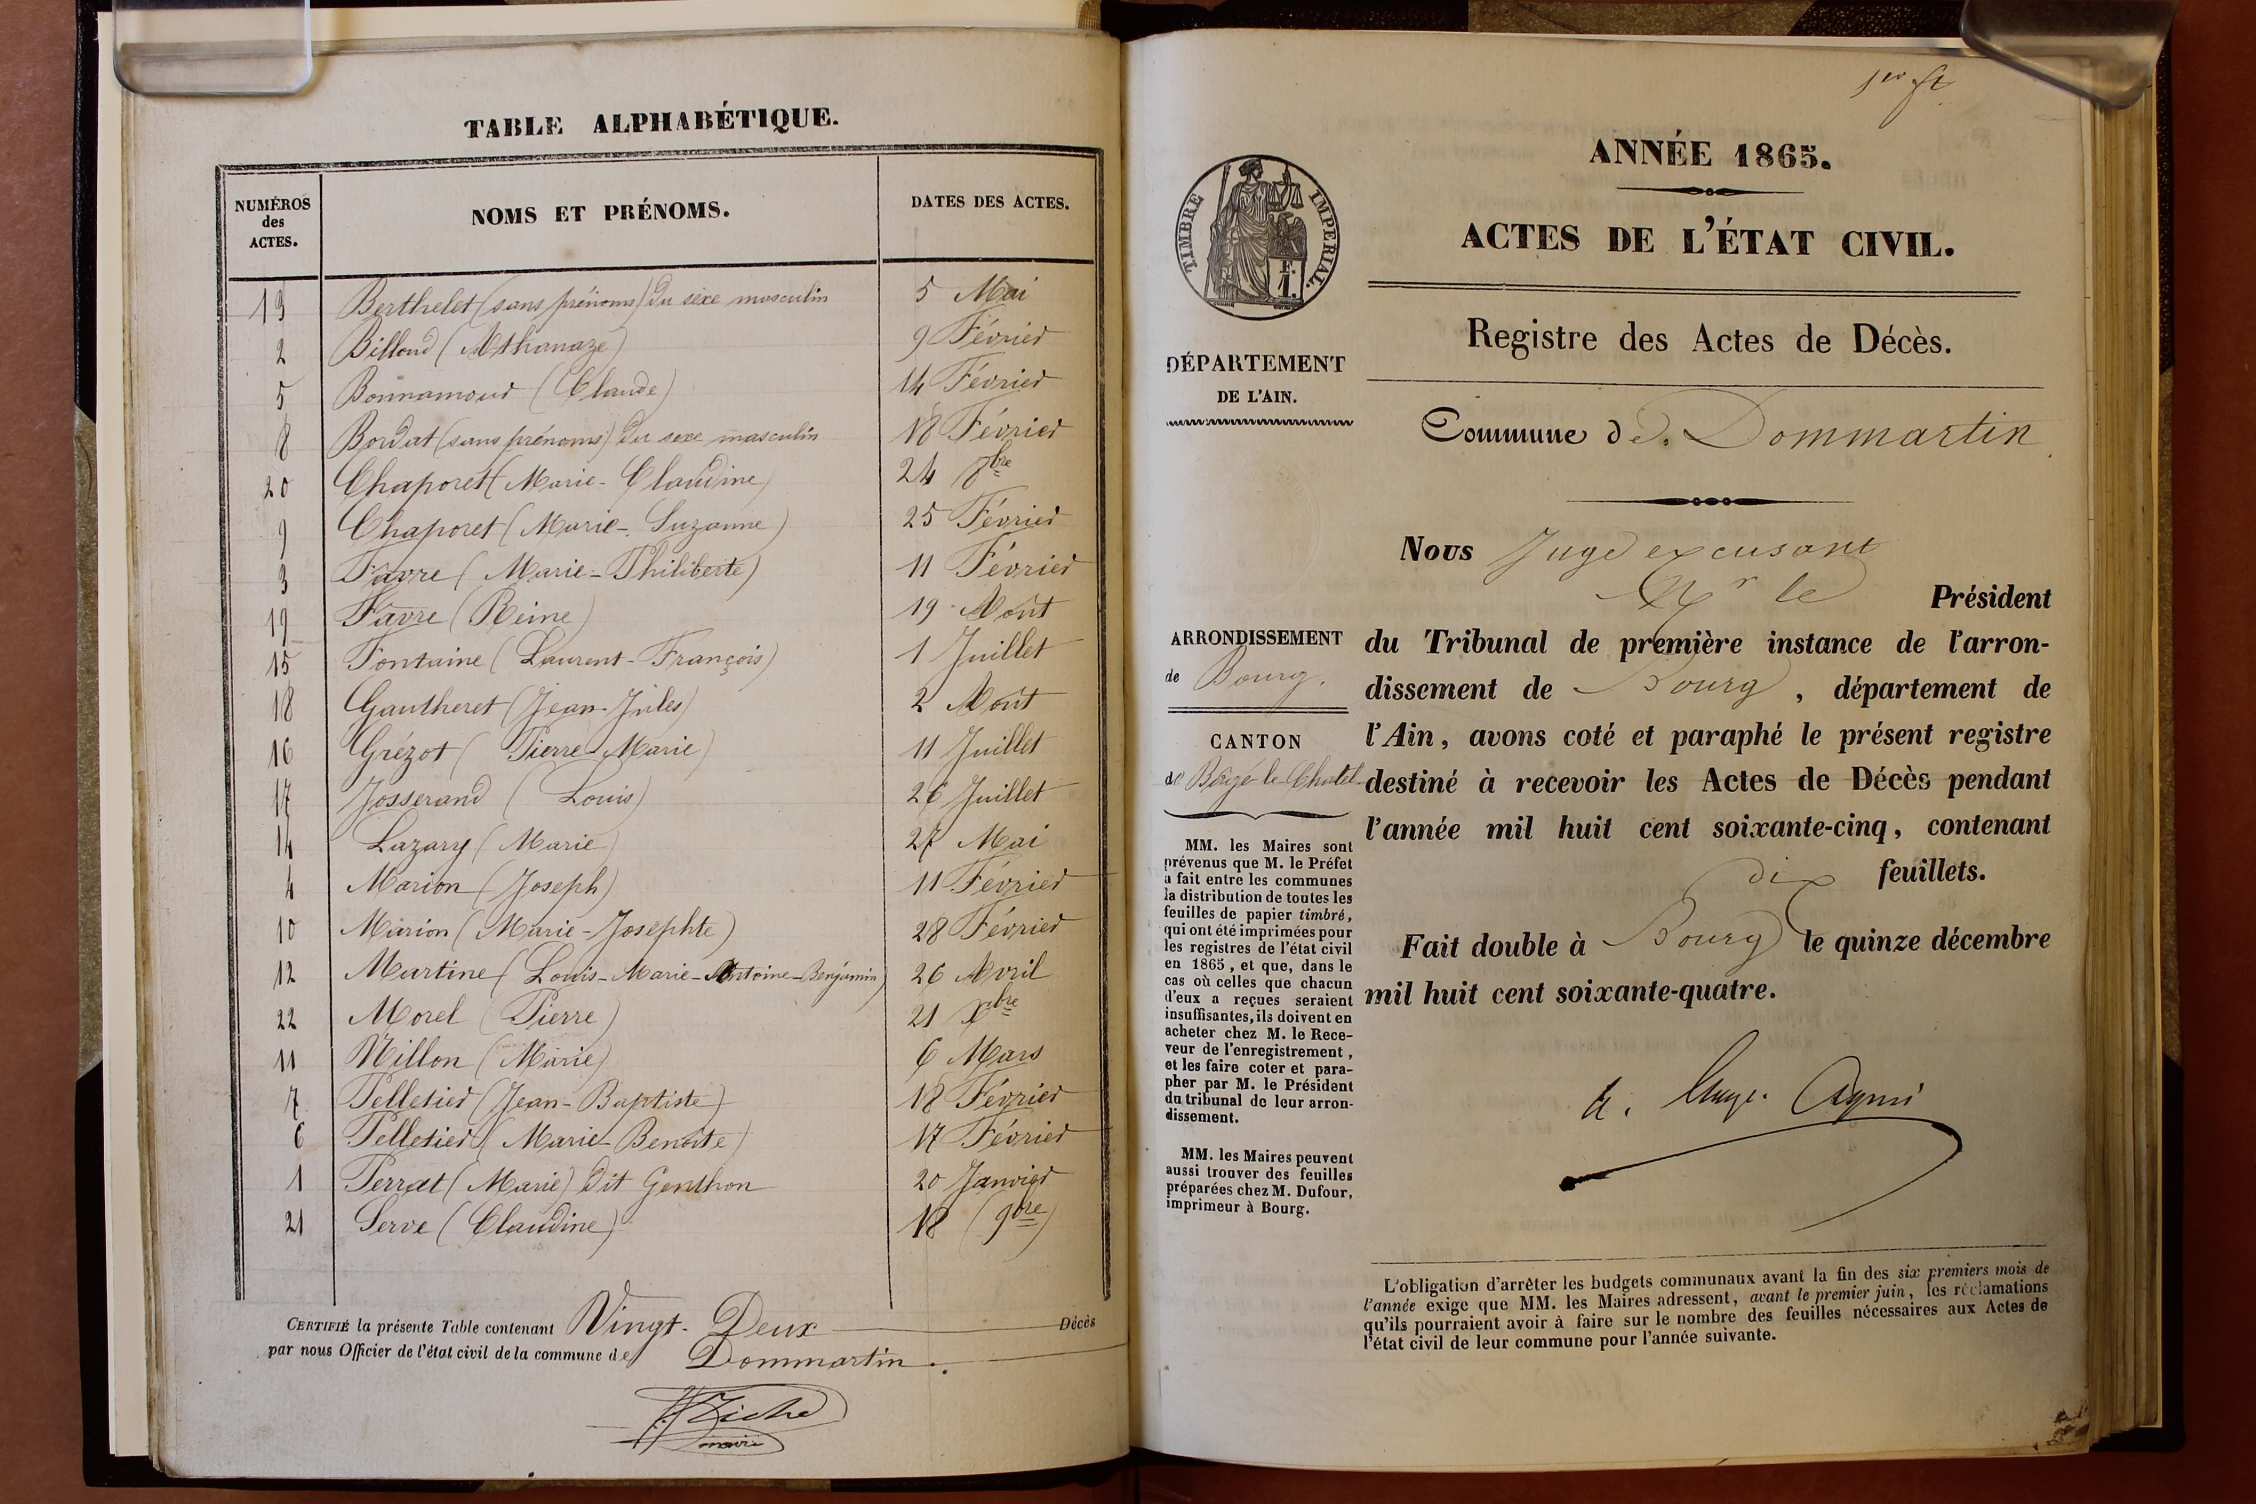 TABLE ALPHABÉTIQUE.
NUMÉROS des ACTES. NOMS ET PRÉNOMS. DATES DES ACTES.
13 Berthelet (sans prénoms) du sexe masculin 5 Mai
2 Billoud (Athanaze) 9 Février
5 Bonnamour (Claude) 14 Février
8 Bordat (sans prénoms) du sexe masculin 18 Février
20 Chaporet (Marie-Claudine) 24 8bre
9 Chaporet (Marie-Suzanne) 25 Février
3 Favre (Marie-Philiberte) 11 Février
19 Favre (Reine) 19 Août
15 Fontaine (Laurent-François) 1 Juillet
18 Gautheret (Jean-Jules) 2 Août
16 Grézot (Pierre-Marie) 11 Juillet
17 Josserand (Louis) 26 Juillet
14 Lazary (Marie) 27 Mai
4 Marion (Joseph) 11 Février
10 Marion (Marie-Josephte) 28 Février
12 Martine (Louis-Marie-Antoine-Benjamin) 26 Avril
22 Morel (Pierre) 21 Xbre
11 Nillon (Marie) 6 Mars
7 Pelletier (Jean-Baptiste) 18 Février
6 Pelletier (Marie-Benoite) 17 Février
1 Perrat (Marie) dit Genthon 20 Janvier
21 Serve (Claudine) 18 (9bre)
CERTIFIÉ la présente Table contenant Vingt-Deux Décès
par nous Officier de l'état civil de la commune de Dommartin.
maire
1er ft
ANNÉE 1865.
ACTES DE L'ÉTAT CIVIL.
TIMBRE IMPERIAL.
Registre des Actes de Décès.
DÉPARTEMENT
DE L'AIN.
Commune de Dommartin
Nous Juge excusant
Mr le Président
du Tribunal de première instance de l'arron-
dissement de Bourg, département de
l'Ain, avons coté et paraphé le présent registre
destiné à recevoir les Actes de Décès pendant
l'année mil huit cent soixante-cinq, contenant
dix feuillets.
Fait double à Bourg le quinze décembre
mil huit cent soixante-quatre.
ARRONDISSEMENT
de Bourg.
CANTON
de Bâgé-le-Chatel
MM. les Maires sont
prévenus que M. le Préfet
a fait entre les communes
la distribution de toutes les
feuilles de papier timbré,
qui ont été imprimées pour
les registres de l'état civil
en 1865, et que, dans le
cas où celles que chacun
d'eux a reçues seraient
insuffisantes, ils doivent en
acheter chez M. le Rece-
veur de l'enregistrement,
et les faire coter et para-
pher par M. le Président
du tribunal de leur arron-
dissement.
MM. les Maires peuvent
aussi trouver des feuilles
préparées chez M. Dufour,
imprimeur à Bourg.
L'obligation d'arrêter les budgets communaux avant la fin des six premiers mois de
l'année exige que MM. les Maires adressent, avant le premier juin, les réclamations
qu'ils pourraient avoir à faire sur le nombre des feuilles nécessaires aux Actes de
l'état civil de leur commune pour l'année suivante.